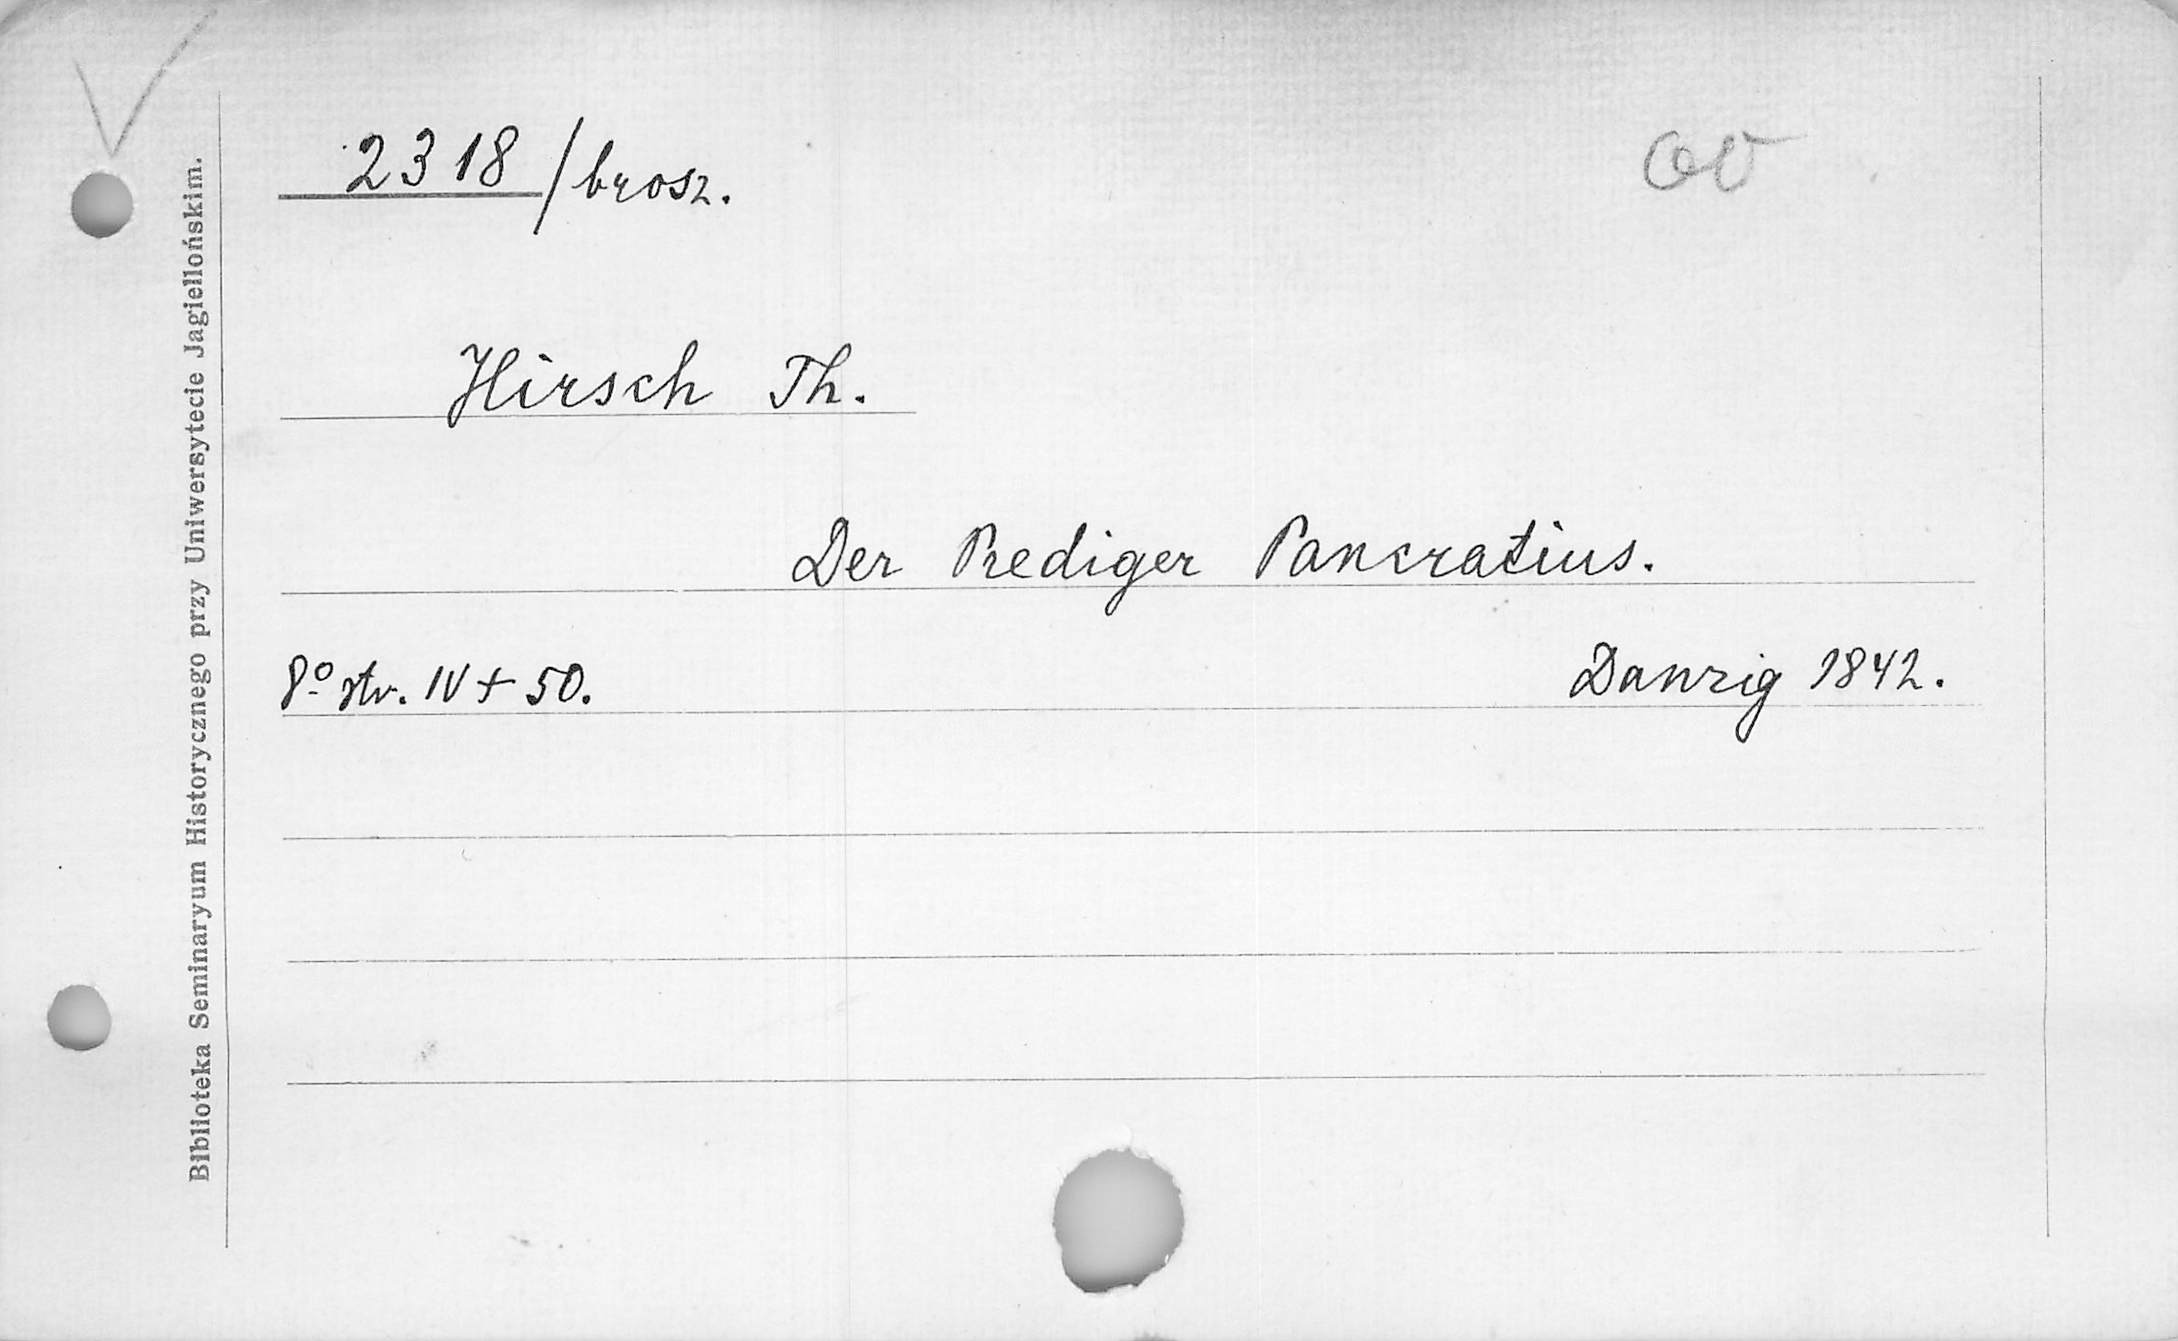 2318/brosz.
Hirsch Th.
Der Prediger Pancratius.
8º str. IV + 50.
Danzig 1842.
Biblioteka Seminaryum Historycznego przy Uniwersytecie Jagiellońskim.